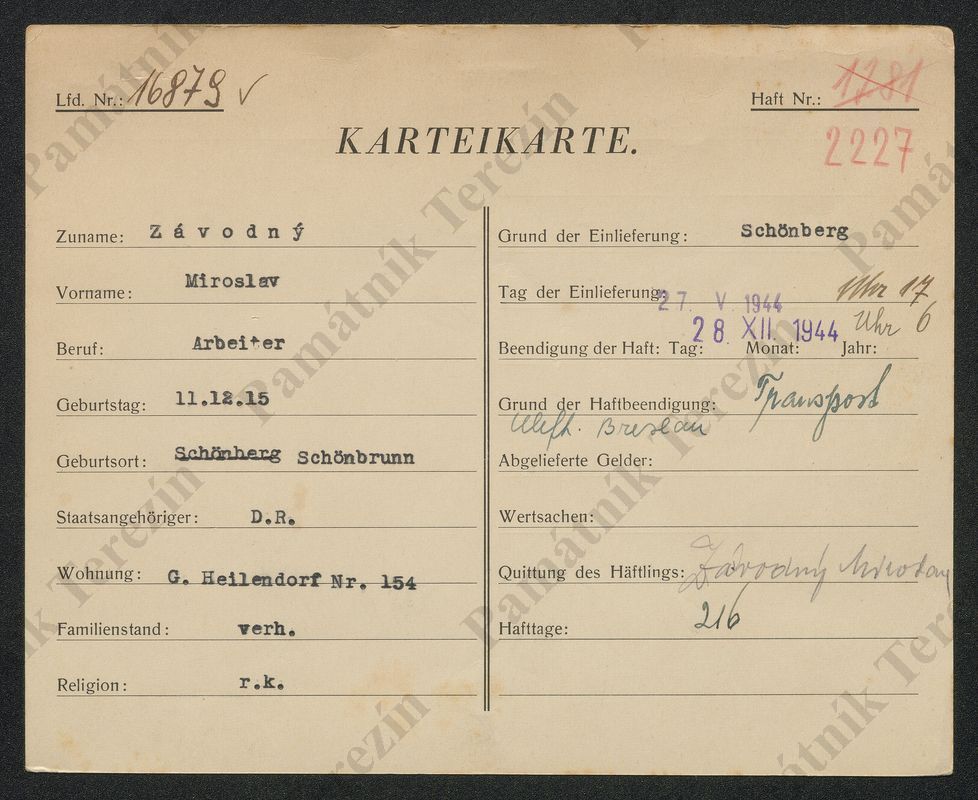 Lfd. Nr.: 16879 √
Haft Nr.: 1281
2227
KARTEIKARTE.
Zuname: Závodný
Vorname: Miroslav
Beruf: Arbeiter
Geburtstag: 11.12.15
Geburtsort: Schönberg Schönbrunn
Staatsangehöriger: D.R.
Wohnung: G. Heilendorf Nr. 154
Familienstand: verh.
Religion: r.k.
Grund der Einlieferung: Schönberg
Tag der Einlieferung: 27. V. 1944 Uhr 17
28. XII. 1944 Uhr 6
Beendigung der Haft: Tag: Monat: Jahr:
Grund der Haftbeendigung: Transport
Breslau
Abgelieferte Gelder:
Wertsachen:
Quittung des Häftlings: Závodný Miroslav
Hafttage: 216
Památník Terezín